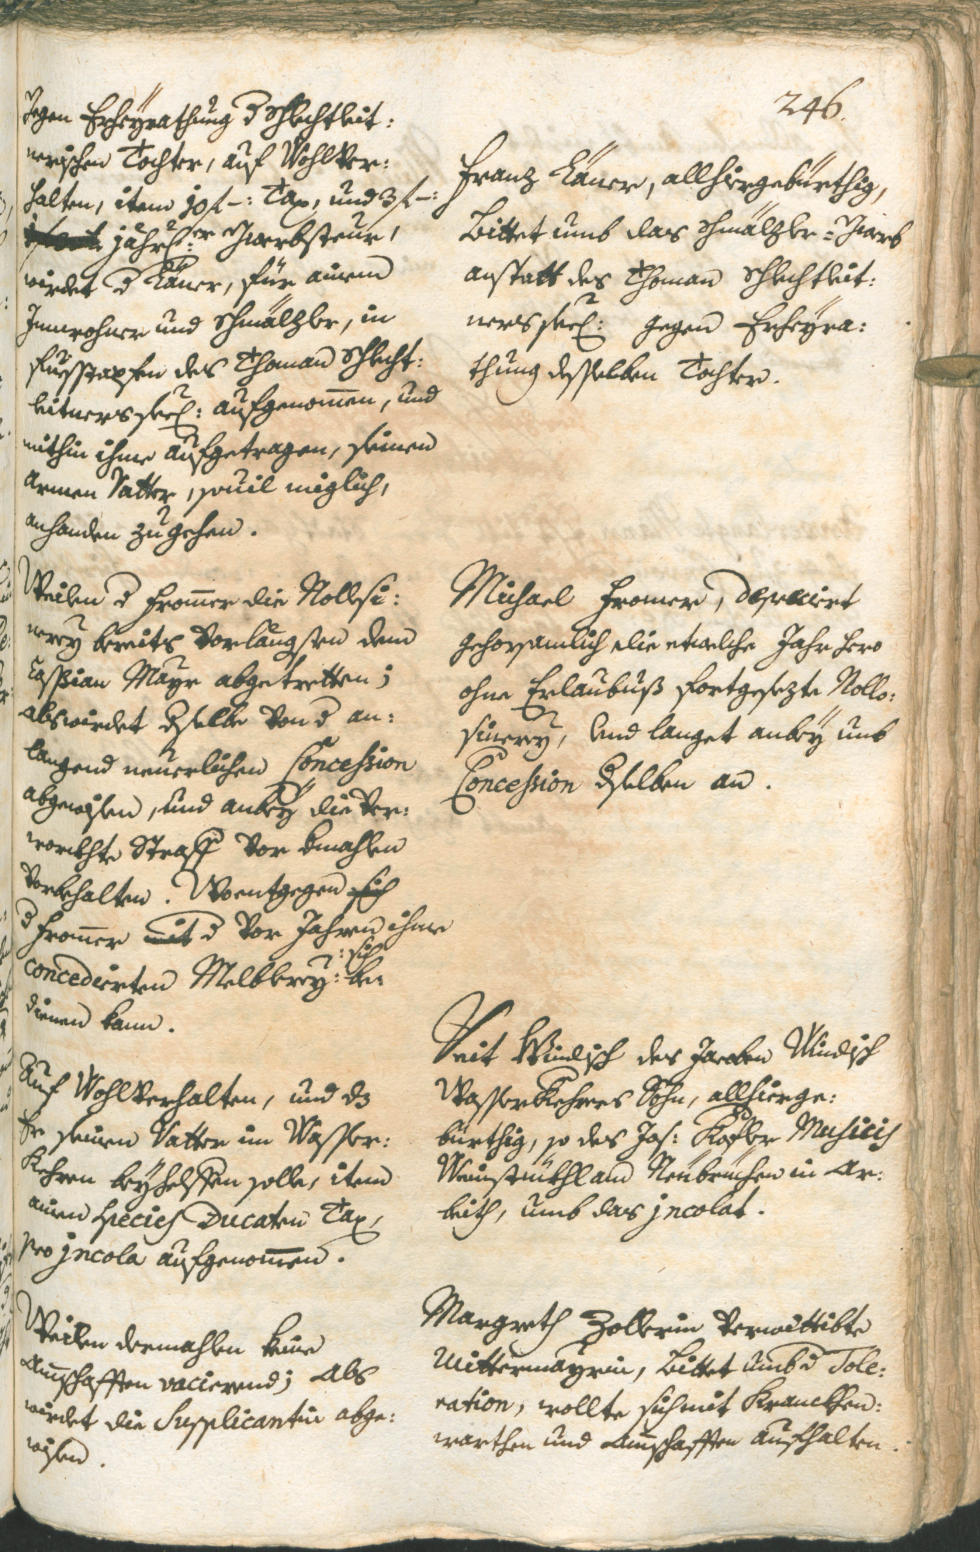 246.
gegen Erheÿrathung d Schlechtleit:
nerischen Tochter, auf Wohlver:
halten, item 10 f –: Tax, und 3 f –:
jährl:er Gwerbsteur,
wirdet d Läner, für ainen
Innwohner und Schmälzler, in
fuesstapfen des Thoman Schlecht:
leitners seel: aufgenommen, und
mithin ihme aufgetragen, seinen
armen Vatter, souil miglich,
anhanden zugehen.
Franz Läner, allhiergebürthig,
Bittet umb das Schmälzler=Gwerb
anstatt des Thoman Schlechtleit:
ners seel: gegen Erheÿra:
thung desselben Tochter.
Weilen d Fromer die Rollosi:
nerey bereits vorlängsten dem
Cassian Maÿr abgetretten;
als wirdet dselbe von d an:
langend neuerlichen Concession
abgewisen, und anbeÿ die ver:
worchte Straff vor dmahlen
vorbehalten. Woentgegen sich
d Fromer mit d vor Jahren ihme
concedierten Melblerey: sich be:
dienen kann.
Michael Fromer, Depreciert
gehorsamlich die etwelche Jahr hero
ohne Erlaubnuß fortgesezte Rollo:
sinerey, und langet anbeÿ umb
Concession dselben an.
Auf Wohlverhalten, und dz
Er seinen Vatter im Wasser:
Kehren beÿhelffen solle, item
ainen Species Ducaten Tax,
pro jncola aufgenommen.
Veit Windisch des Jacoben Windisch
Wasserkehrers Sohn, allhierge:
bürthig, so des Jos: Kofler Musicis
Weinstückhl am Neubruchen in Ar:
beith, umb das jncolat.
Weilen dermahlen keine
Amschafften vacierend; Als
wirdet die Supplicantin abge:
wisen.
Margreth Zollerin verwittibte
Mittermaÿrin, Bittet umb d Tole:
ration, wollte sich mit Krankhen:
warthen und Amschafften aufhalten.